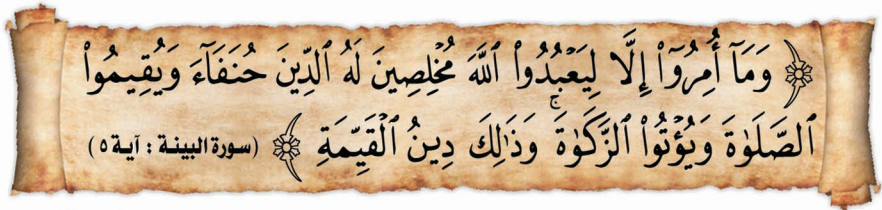 ﴿ وَمَآ أُمِرُوٓا۟ إِلَّا لِيَعْبُدُوا۟ ٱللَّهَ مُخْلِصِينَ لَهُ ٱلدِّينَ حُنَفَآءَ وَيُقِيمُوا۟
ٱلصَّلَوٰةَ وَيُؤْتُوا۟ ٱلزَّكَوٰةَ ۚ وَذَٰلِكَ دِينُ ٱلْقَيِّمَةِ ﴾ (سورة البينة : آية ٥)